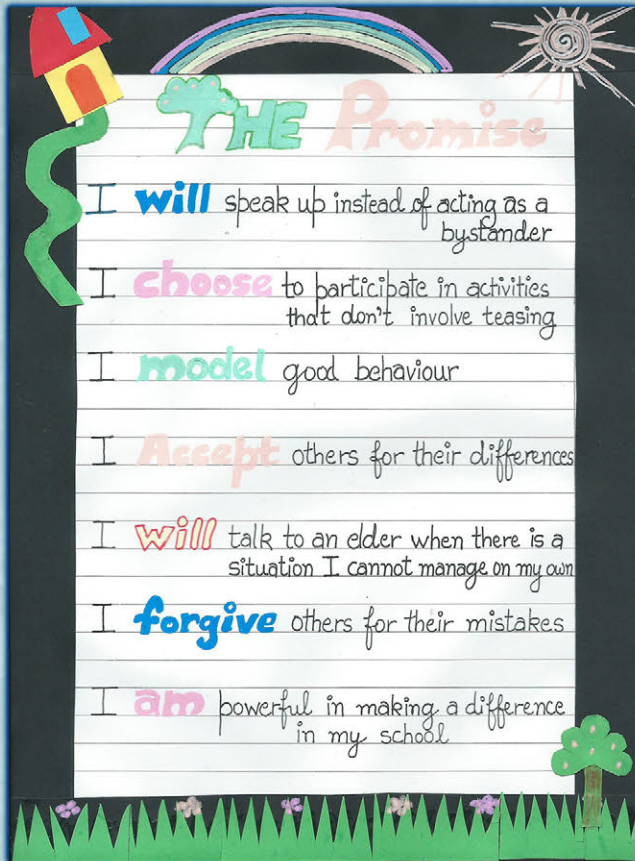 THE Promise
I will speak up instead of acting as a
bystander
I choose to participate in activities
that don't involve teasing
I model good behaviour
I Accept others for their differences
I will talk to an elder when there is a
situation I cannot manage on my own
I forgive others for their mistakes
I am powerful in making a difference
in my school